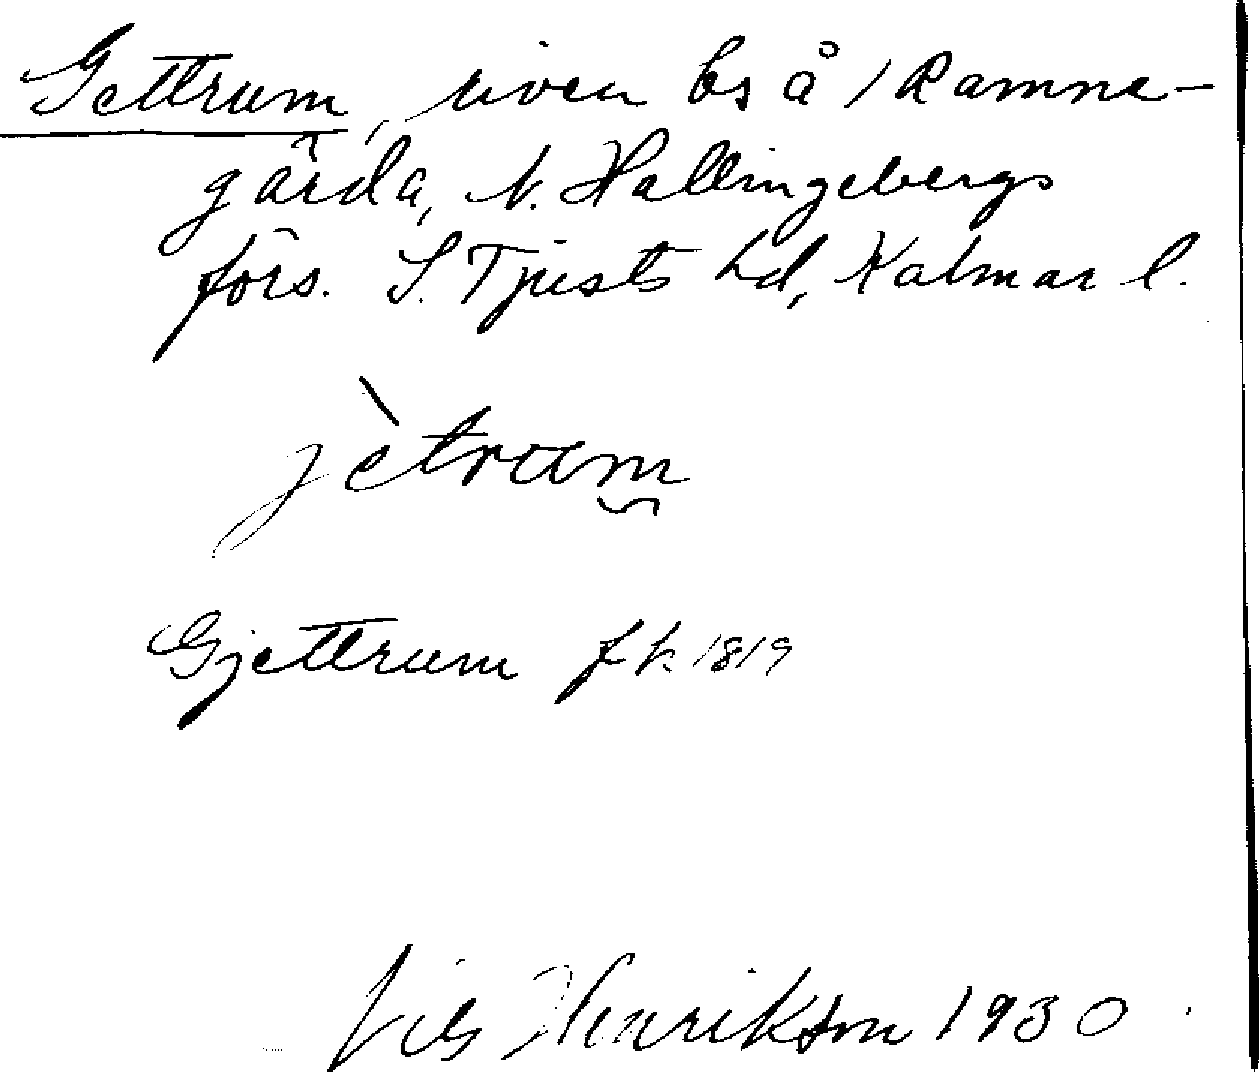 Gettrum, riven bs å 1 Ramne-
gärda, N. Hallingebergs
förs. S. Tjusts hd, Kalmar l.
jètrum
Gjettrum fk. 1819
Nils Henrikson 1930